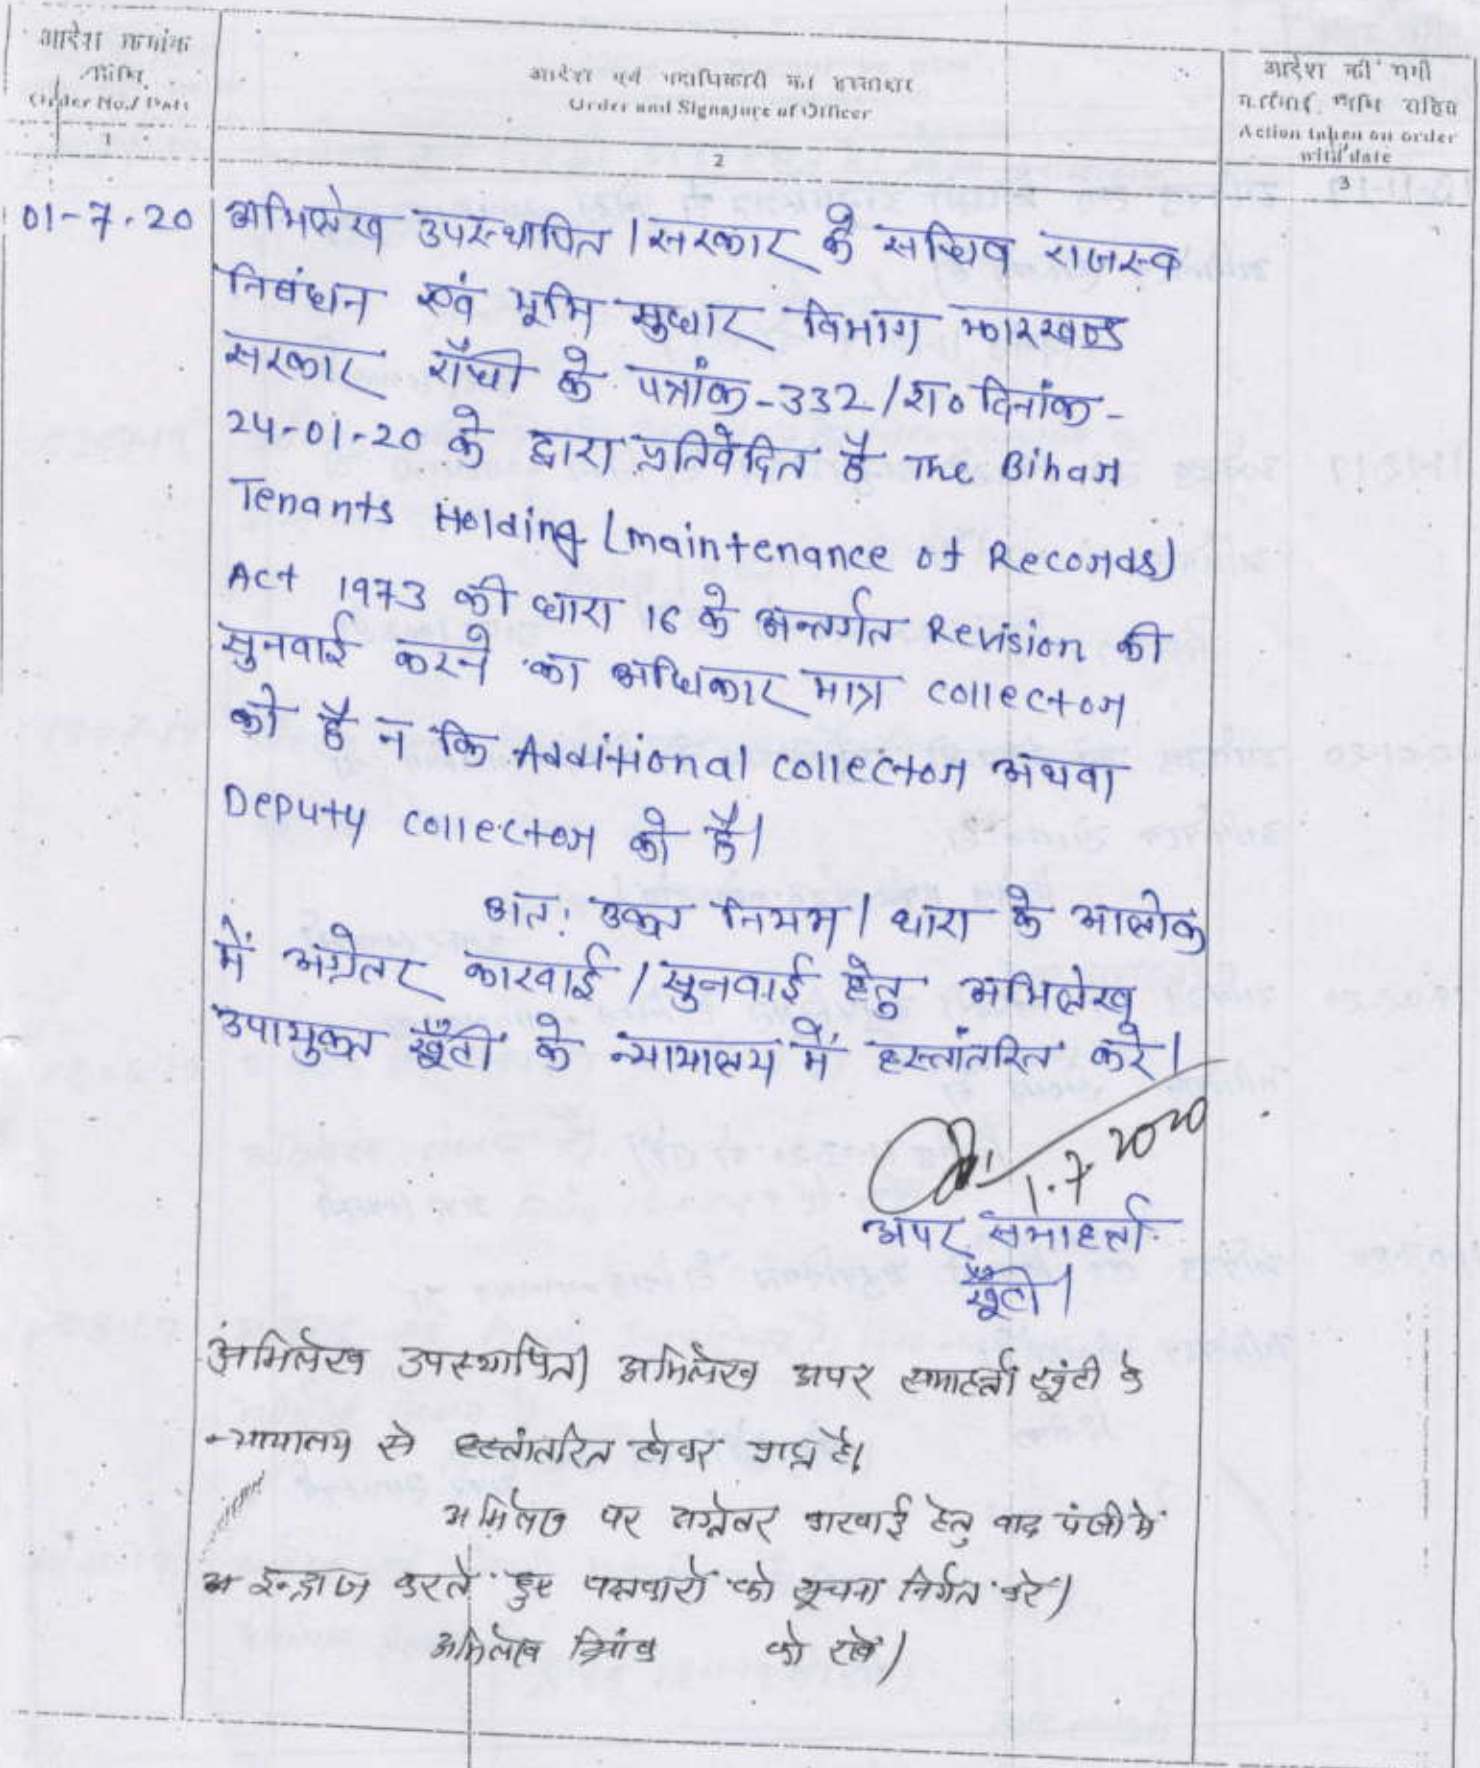 आदेश क्रमांक
तिथि
Order No./ Date
1
आदेश एवं पदाधिकारी का हस्ताक्षर
Order and Signature of Officer
2
आदेश की गयी
कार्रवाई, तिथि सहित
Action taken on order
with date
3
01-7-20 अभिलेख उपस्थापित । सरकार के सचिव राजस्व
निबंधन एवं भूमि सुधार विभाग झारखण्ड
सरकार राँची के पत्रांक-332/रा० दिनांक-
24-01-20 के द्वारा प्रतिवेदित है The Bihar
Tenants Holding (maintenance of Records)
Act 1973 की धारा 16 के अन्तर्गत Revision की
सुनवाई करने का अधिकार मात्र collector
को है न कि Additional collector अथवा
Deputy collector को है।
अत: उक्त नियम / धारा के आलोक
में अग्रेतर कारवाई / सुनवाई हेतु अभिलेख
उपायुक्त खूँटी के न्यायालय में हस्तांतरित करे।
1.7.2020
अपर समाहर्ता
खूँटी।
अभिलेख उपस्थापित। अभिलेख अपर समाहर्ता खूंटी के
न्यायालय से हस्तांतरित होकर प्राप्त है।
अभिलेख पर अग्रेतर कारवाई हेतु वाद पंजी में
इन्द्राज करते हुए पक्षकारों को सूचना निर्गत करे।
अभिलेख दिनांक को रखें।